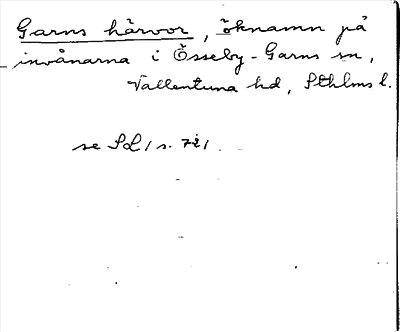 Garns härvor, öknamn på
invånarna i Össeby-Garns sn,
Vallentuna hd, Sthlms l.
se SL/s. 72/.